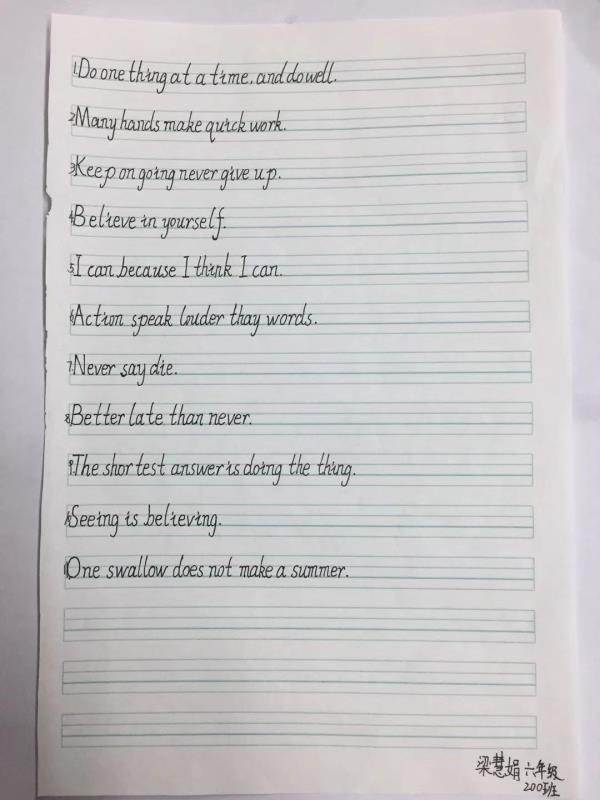 1.Do one thing at a time, and do well.
2.Many hands make quick work.
3.Keep on going never give up.
4.Believe in yourself.
5.I can because I think I can.
6.Action speak louder thay words.
7.Never say die.
8.Better late than never.
9.The shortest answer is doing the thing.
10.Seeing is believing.
11.One swallow does not make a summer.
梁慧娟 六年级
200班